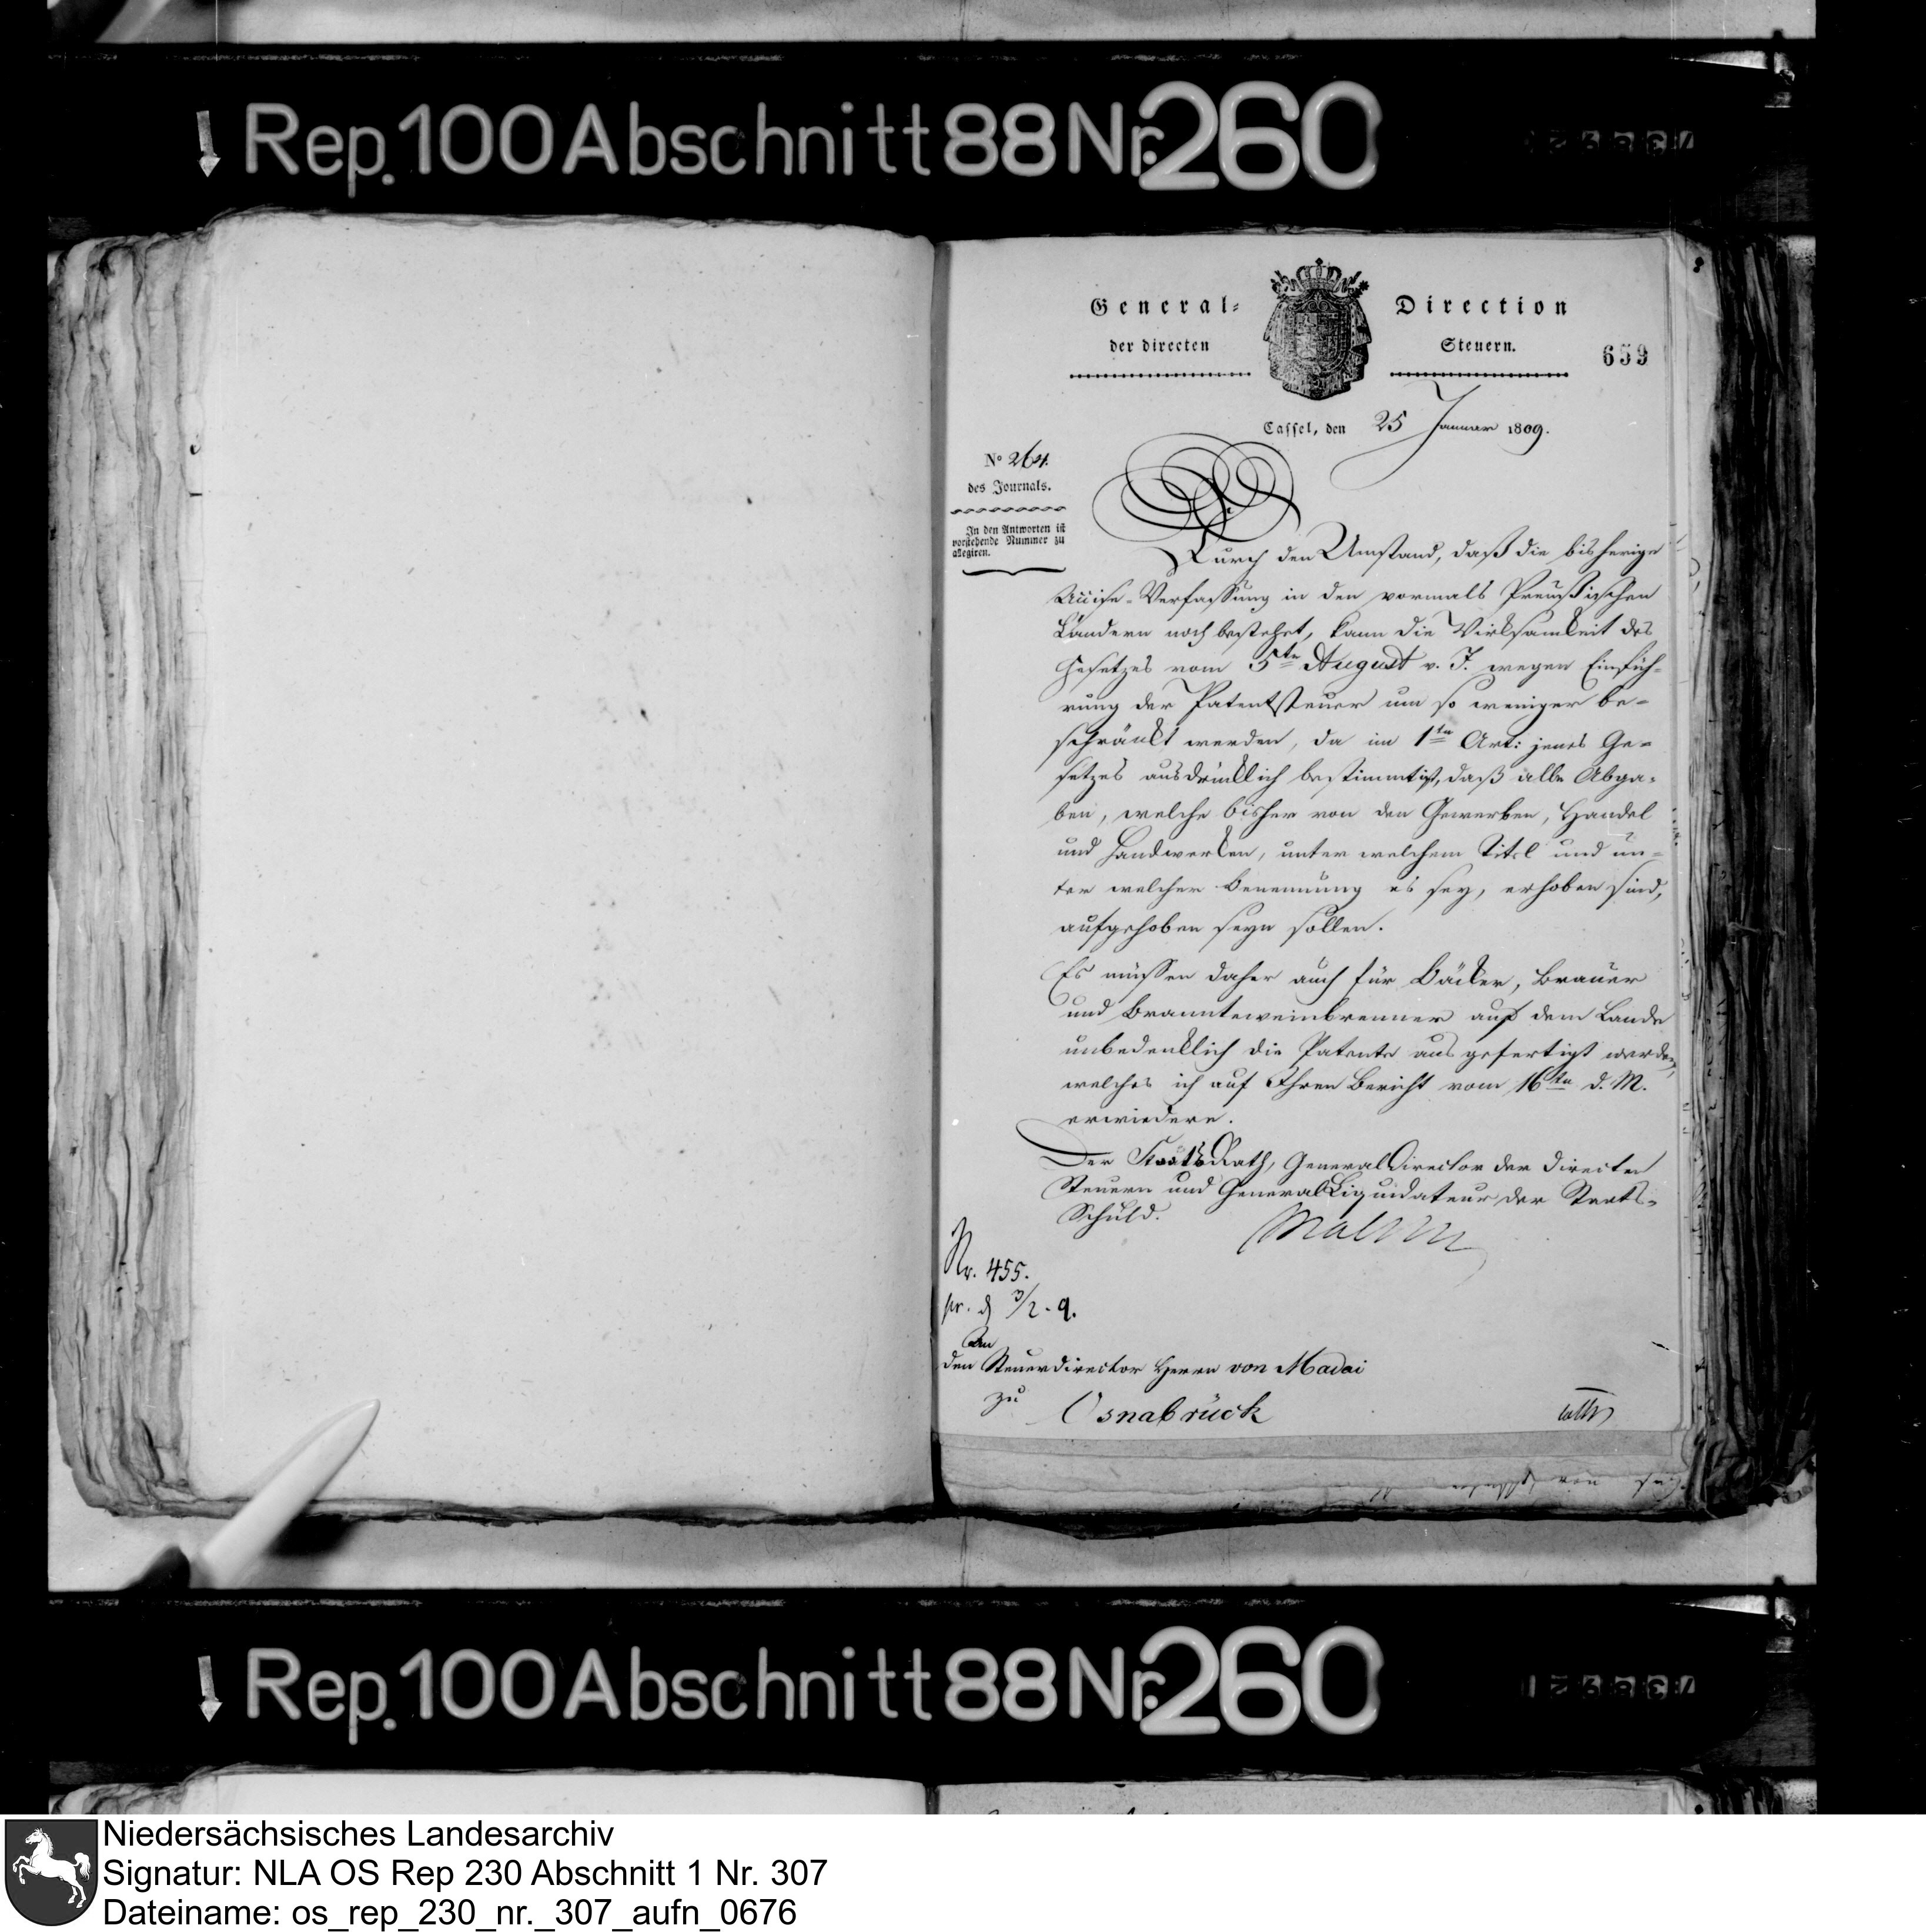 Rep. 100 Abschnitt 88 Nr. 260
General-Direction
der directen Steuern.
659
Cassel, den 25 Januar 1809.
N° 264.
des Journals.
In den Antworten ist
vorstehende Nummer zu
allegiren.
Durch den Umstand, daß die bisherige
Accise-Verfassung in den vormals Preußischen
Ländern noch bestehet, kann die Wirksamkeit des
Gesetzes vom 5ten August v. J. wegen Einfüh-
rung der Patentsteuer um so weniger be-
schränkt werden, da im 1ten Art: jenes Ge-
setzes ausdrücklich bestimmt ist, daß alle Abga-
ben, welche bisher von den Gewerben, Handel
und Handwerken, unter welchem Titel und un-
ter welcher Benennung es sey, erhoben sind,
aufgehoben seyn sollen.
Es müssen daher auch für Bäcker, Brauer
und Brannteweinbrenner auf dem Lande
unbedenklich die Patente ausgefertigt werden,
welches ich auf Ihren Bericht vom 16ten d. M.
erwiedere.
Der StaatsRath, GeneralDirector der directen
Steuern und GeneralLiquidateur der Staats-
Schuld.
Malchus
Nr. 455.
pr. d 3/2. 9.
An
den Steuerdirector Herrn von Madai
zu Osnabrück
von
Rep. 100 Abschnitt 88 Nr. 260
Niedersächsisches Landesarchiv
Signatur: NLA OS Rep 230 Abschnitt 1 Nr. 307
Dateiname: os_rep_230_nr._307_aufn_0676